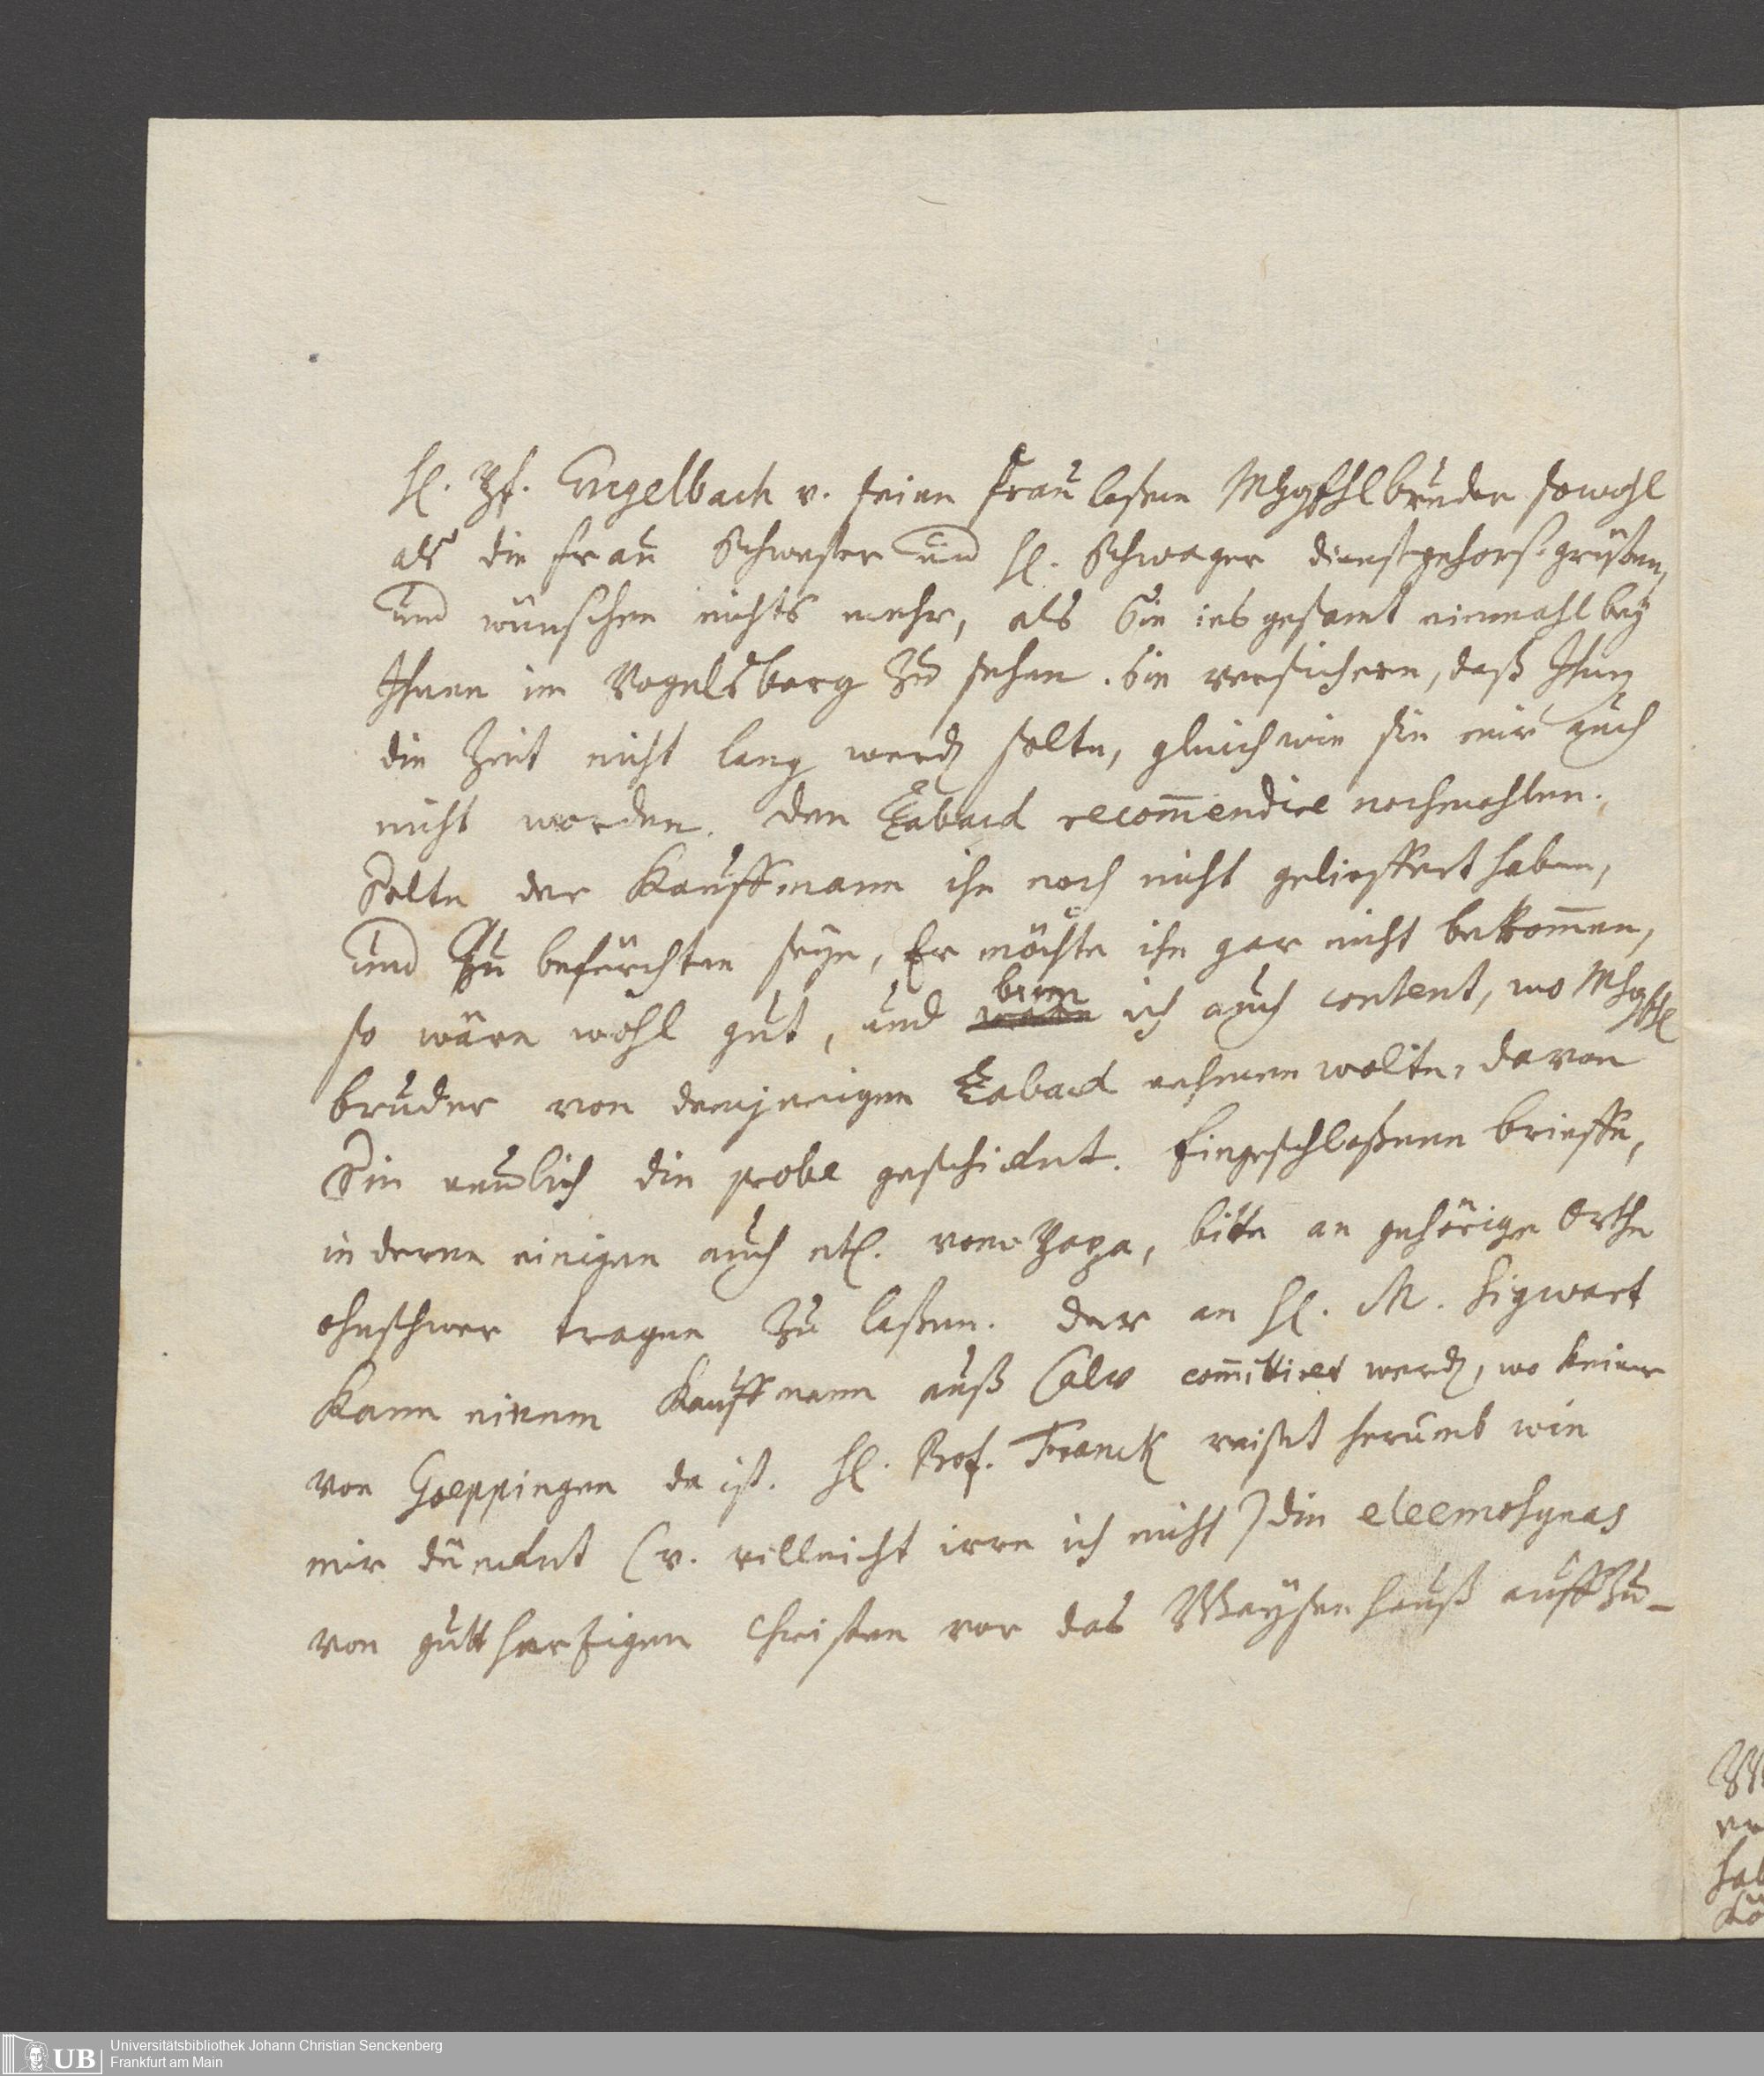 H. Pf. Engelbach v. seine Frau laßen MhgfhlBruder sowohl
als die Frau Schwester und H. Schwager dienstgehorst grüßen,
und wünschen nichts mehr, als Sie ins gesamt einmahl bey
Ihnen im Vogelsberg zu sehen. Sie versichern, daß Ihnen
die Zeit nicht lang werden solte, gleich wie sie mir auch
nicht worden. Den Taback recom̄endire nochmahlen.
Solte der Kauffmann ihn noch nicht geliefert haben,
und zu befürchten seyn, Er möchte ihn gar nicht bekom̄en,
so wäre wohl gut, und bin ich auch content, wo Mhgfhl
bruder von demjenigen Taback nehmen wolte, davon
Sie neulich die probe geschicket. Eingeschloßene brieffe,
in deren einigen auch etl. vom Papa, bitte an gehörige Orthe
ohnschwer tragen zu laßen. Der an H. M. Sigwart
kann einem Kauffmann auß Calv com̄ittiret werden, wo keiner
von Goeppingen da ist. H. Prof. Franck reiset herumb wie
mir düncket (v. villeicht irre ich nicht) die eleemosynas
von guttherzigen Christen vor das Waysenhauß auffzu-
Universitätsbibliothek Johann Christian Senckenberg
Frankfurt am Main
UB